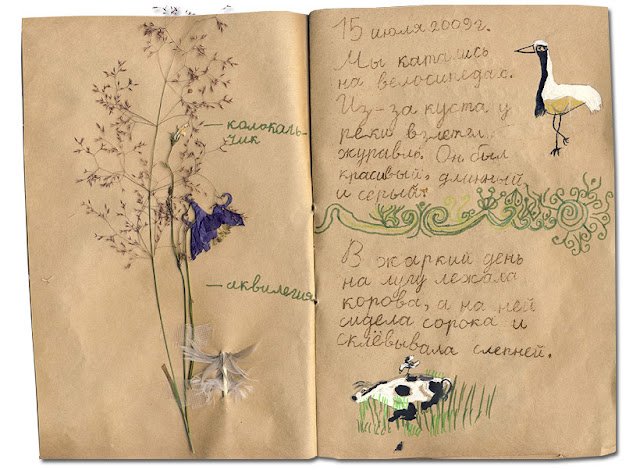 колоколь-
чик
аквилегия
15 июля 2009г.
Мы катались
на велосипедах.
Из-за куста у
реки взлетел
журавль. Он был
красивый, длинный
и серый.
В жаркий день
на лугу лежала
корова, а на ней
сидела сорока и
склёвывала слепней.